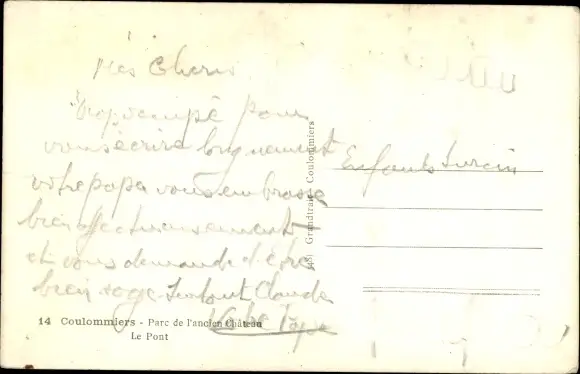 Mes Chéris
Trop occupé pour
vous écrire longuement
votre papa vous embrasse
bien affectueusement
et vous demande d'être
bien sage surtout Claude
Votre Papa
Enfants
14 Coulommiers - Parc de l'ancien Château
Le Pont
Coulommiers